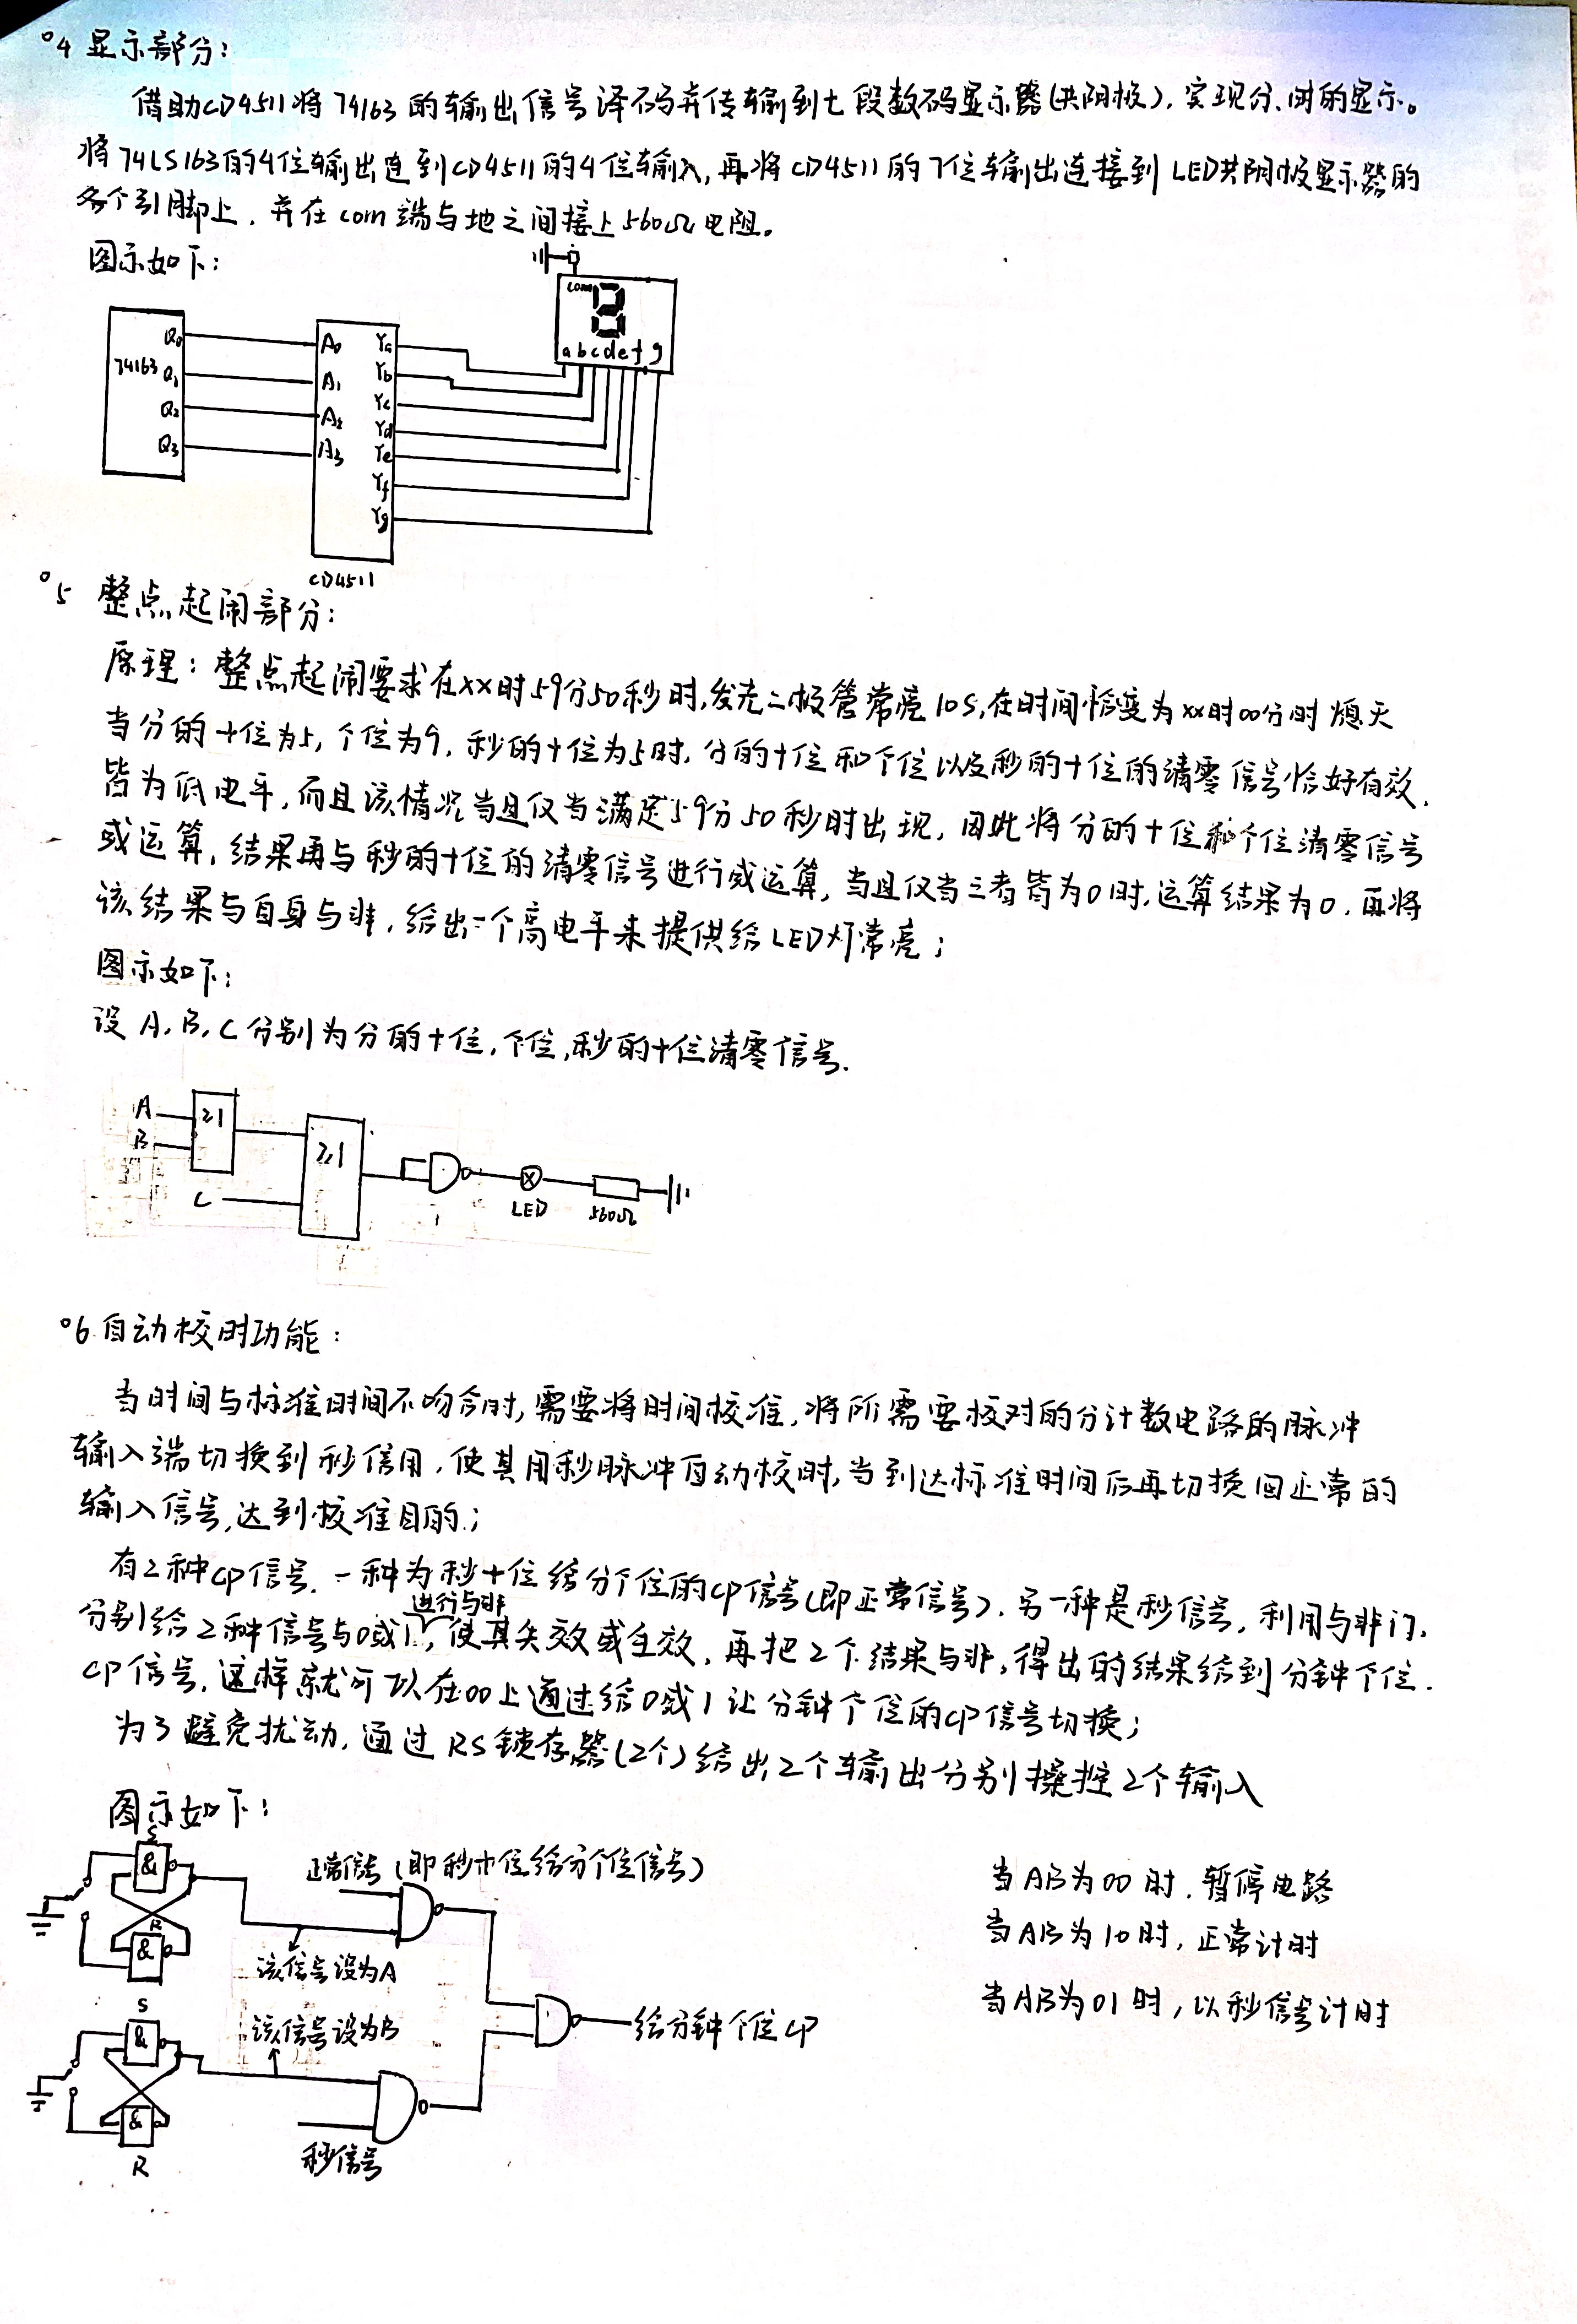 °4 显示部分：
借助CD4511将 74163 的输出信号译码并传输到七段数码显示器(共阴极)，实现分、时的显示。
将74LS163的4位输出连到CD4511的4位输入，再将CD4511的7位输出连接到LED共阴极显示器的
各个引脚上，并在com端与地之间接上560Ω电阻。
图示如下：
com
a b c d e f g
74163
Q0
Q1
Q2
Q3
A0
A1
A2
A3
Ya
Yb
Yc
Yd
Ye
Yf
Yg
CD4511
°5 整点起闹部分：
原理：整点起闹要求在XX时59分50秒时，发光二极管常亮10S，在时间恰变为XX时00分时熄灭
当分的十位为5，个位为9，秒的十位为5时，分的十位和个位以及秒的十位的清零信号恰好有效，
皆为低电平，而且该情况当且仅当满足59分50秒时出现，因此将分的十位和个位清零信号
或运算，结果再与秒的十位的清零信号进行或运算，当且仅当三者皆为0时，运算结果为0，再将
该结果与自身与非，给出一个高电平来提供给LED灯常亮；
图示如下：
设A、B、C分别为分的十位，个位，秒的十位清零信号.
A
B
C
≥1
≥1
LED
560Ω
°6 自动校时功能：
当时间与标准时间不吻合时，需要将时间校准，将所需要校对的分计数电路的脉冲
输入端切换到秒信用，使其用秒脉冲自动校时，当到达标准时间后再切换回正常的
输入信号，达到校准目的；
有2种CP信号，一种为秒十位给分个位的CP信号(即正常信号)，另一种是秒信号，利用与非门，
分别给2种信号与0或1进行与非，使其失效或生效，再把2个结果与非，得出的结果给到分钟个位.
CP信号，这样就可以在00上通过给0或1让分钟个位的CP信号切换；
为了避免扰动，通过RS锁存器(2个)给出2个输出分别操控2个输入
图示如下：
S
&
R
&
正常信号(即秒十位给分个位信号)
该信号设为A
该信号设为B
S
&
&
R
秒信号
给分钟个位CP
当AB为00时，暂停电路
当AB为10时，正常计时
当AB为01时，以秒信号计时